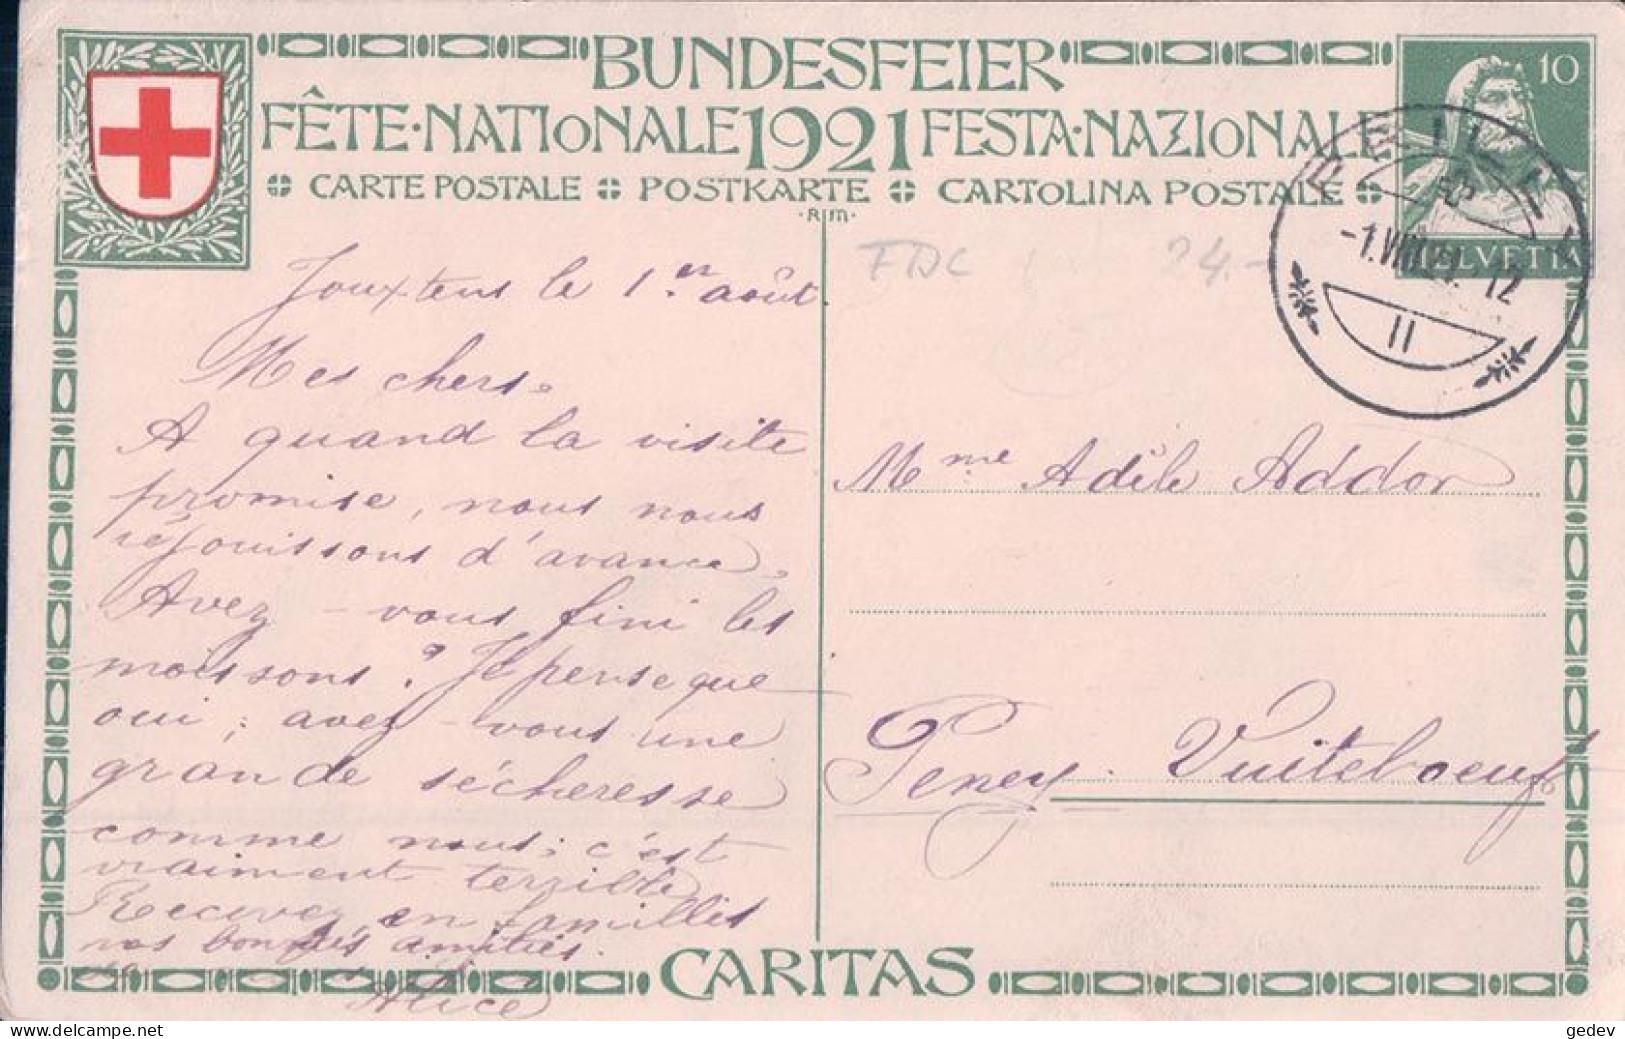 BUNDESFEIER
FÊTE·NATIONALE 1921 FESTA·NAZIONALE
CARTE POSTALE POSTKARTE CARTOLINA POSTALE
·RM·
10
HELVETIA
PRILLY
-1.VIII.21. 12
II
FDC 24.-
Jouxtens le 1.er août.
Mes chers.
A quand la visite
promise, nous nous
réjouissons d'avance.
Avez-vous fini les
moissons? Je pense que
oui; avez-vous une
grande sécheresse
comme nous; c'est
vraiment terrible
Recevez en familles
nos bonnes amitiés.
Alice
Mme Adèle Addor
Peney. Vuiteboeuf
CARITAS
gedev
delcampe.net